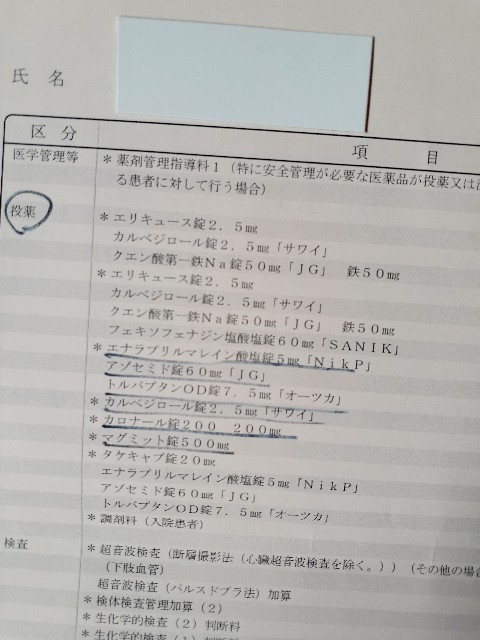 氏 名
区 分 項 目
医学管理等 *薬剤管理指導料1(特に安全管理が必要な医薬品が投薬又は
る患者に対して行う場合)
投薬 *エリキュース錠2.5㎎
カルベジロール錠2.5㎎「サワイ」
クエン酸第一鉄Na錠50㎎「JG」 鉄50㎎
*エリキュース錠2.5㎎
カルベジロール錠2.5㎎「サワイ」
クエン酸第一鉄Na錠50㎎「JG」 鉄50㎎
フェキソフェナジン塩酸塩錠60㎎「SANIK」
*エナラプリルマレイン酸塩錠5㎎「NikP」
アゾセミド錠60㎎「JG」
トルバプタンOD錠7.5㎎「オーツカ」
*カルベジロール錠2.5㎎「サワイ」
*カロナール錠200 200㎎
*マグミット錠500㎎
*タケキャブ錠20㎎
エナラプリルマレイン酸塩錠5㎎「NikP」
アゾセミド錠60㎎「JG」
トルバプタンOD錠7.5㎎「オーツカ」
*調剤料(入院患者)
検査 *超音波検査(断層撮影法(心臓超音波検査を除く。))(その他の場合
(下肢血管)
超音波検査(パルスドプラ法)加算
*検体検査管理加算(2)
*生化学的検査(2)判断料
*生化学的検査(1)判断料